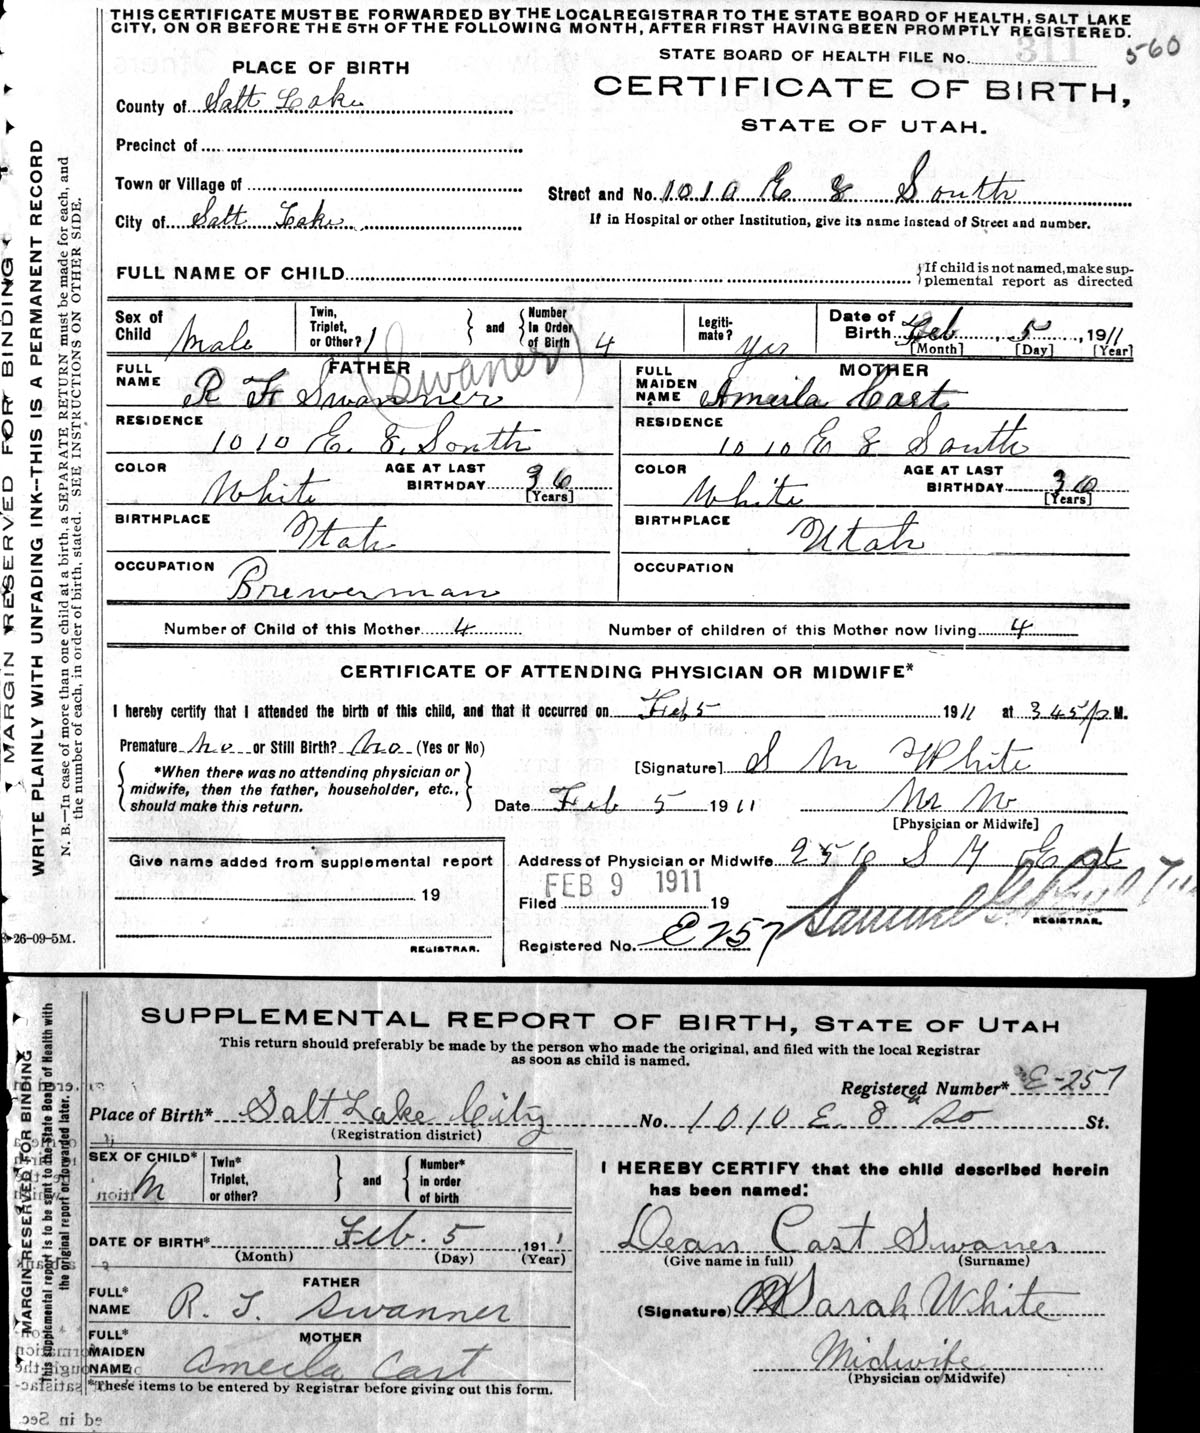 THIS CERTIFICATE MUST BE FORWARDED BY THE LOCAL REGISTRAR TO THE STATE BOARD OF HEALTH, SALT LAKE
CITY, ON OR BEFORE THE 5TH OF THE FOLLOWING MONTH, AFTER FIRST HAVING BEEN PROMPTLY REGISTERED.
STATE BOARD OF HEALTH FILE No. 311 560
PLACE OF BIRTH
CERTIFICATE OF BIRTH,
STATE OF UTAH.
County of Salt Lake
Precinct of
Town or Village of
Street and No. 1010 E 8 South
City of Salt Lake
If in Hospital or other Institution, give its name instead of Street and number.
FULL NAME OF CHILD
{If child is not named, make sup-
plemental report as directed
Sex of Child Male
Twin, Triplet, or Other? 1 } and { Number In Order of Birth 4
Legiti-mate? yes
Date of Birth Feb 5, 1911
[Month] [Day] [Year]
FATHER
FULL NAME R F Swanner (Swaner)
MOTHER
FULL MAIDEN NAME Ameila Cast
RESIDENCE 1010 E. 8. South
RESIDENCE 1010 E 8 South
COLOR White AGE AT LAST BIRTHDAY 36 [Years]
COLOR White AGE AT LAST BIRTHDAY 36 [Years]
BIRTHPLACE Utah
BIRTHPLACE Utah
OCCUPATION Brewerman
OCCUPATION
Number of Child of this Mother 4 Number of children of this Mother now living 4
CERTIFICATE OF ATTENDING PHYSICIAN OR MIDWIFE*
I hereby certify that I attended the birth of this child, and that it occurred on Feb 5 1911 at 3 45 p M.
Premature no or Still Birth? No (Yes or No)
*When there was no attending physician or
midwife, then the father, householder, etc.,
should make this return.
[Signature] S M White
Date Feb 5 1911
[Physician or Midwife]
Give name added from supplemental report
19
REGISTRAR.
Address of Physician or Midwife 256 S 4 East
FEB 9 1911
Filed 19
REGISTRAR.
Registered No. E257
MARGIN RESERVED FOR BINDING
WRITE PLAINLY WITH UNFADING INK—THIS IS A PERMANENT RECORD
N. B.—In case of more than one child at a birth, a SEPARATE RETURN must be made for each, and
the number of each, in order of birth, stated. SEE INSTRUCTIONS ON OTHER SIDE.
26-09-5M.
SUPPLEMENTAL REPORT OF BIRTH, STATE OF UTAH
This return should preferably be made by the person who made the original, and filed with the local Registrar
as soon as child is named.
Registered Number* E-257
Place of Birth* Salt Lake City No. 1010 E. 8 So St.
(Registration district)
SEX OF CHILD* M
Twin* Triplet, or other? } and { Number* in order of birth
I HEREBY CERTIFY that the child described herein
has been named:
DATE OF BIRTH* Feb. 5, 1911
(Month) (Day) (Year)
Dean Cast Swaner
(Give name in full) (Surname)
FATHER
FULL* NAME R. F. Swanner
(Signature) Sarah White
MOTHER
FULL* MAIDEN NAME Ameila Cast
Midwife
(Physician or Midwife)
*These items to be entered by Registrar before giving out this form.
MARGIN RESERVED FOR BINDING
This supplemental report is to be sent to the State Board of Health with
the original report or forwarded later.